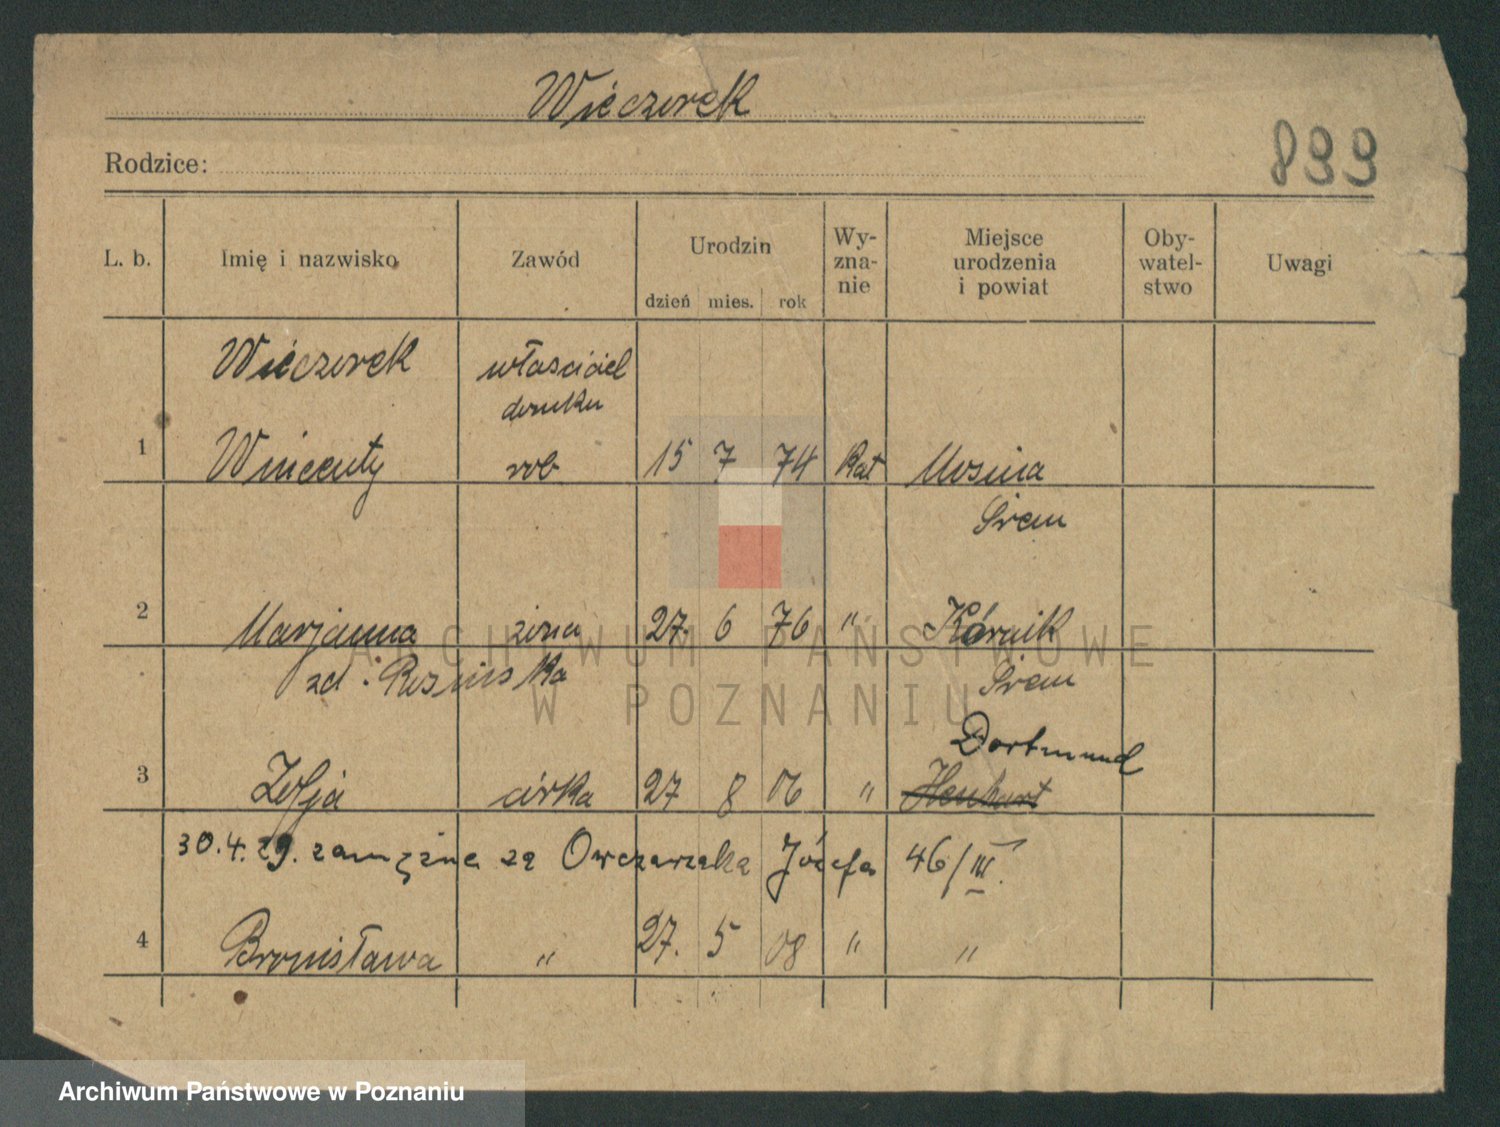 Wieczorek
899
Rodzice:
L. b. Imię i nazwisko Zawód Urodzin dzień mies. rok Wy-zna-nie Miejsce urodzenia i powiat Oby-watel-stwo Uwagi
Wieczorek właściciel
domku
1 Wincenty rob 15 7 74 Kat Mosina
Śrem
2 Marjanna żona 27. 6 76 " Kórnik
zd. Śrem
Dortmund
3 Zofja córka 27 8 06 "
30.4.29. zamężna za Owczarzaka Józefa 46/III.
4 Bronisława " 27. 5 08 " "
ARCHIWUM PAŃSTWOWE
W POZNANIU
Archiwum Państwowe w Poznaniu